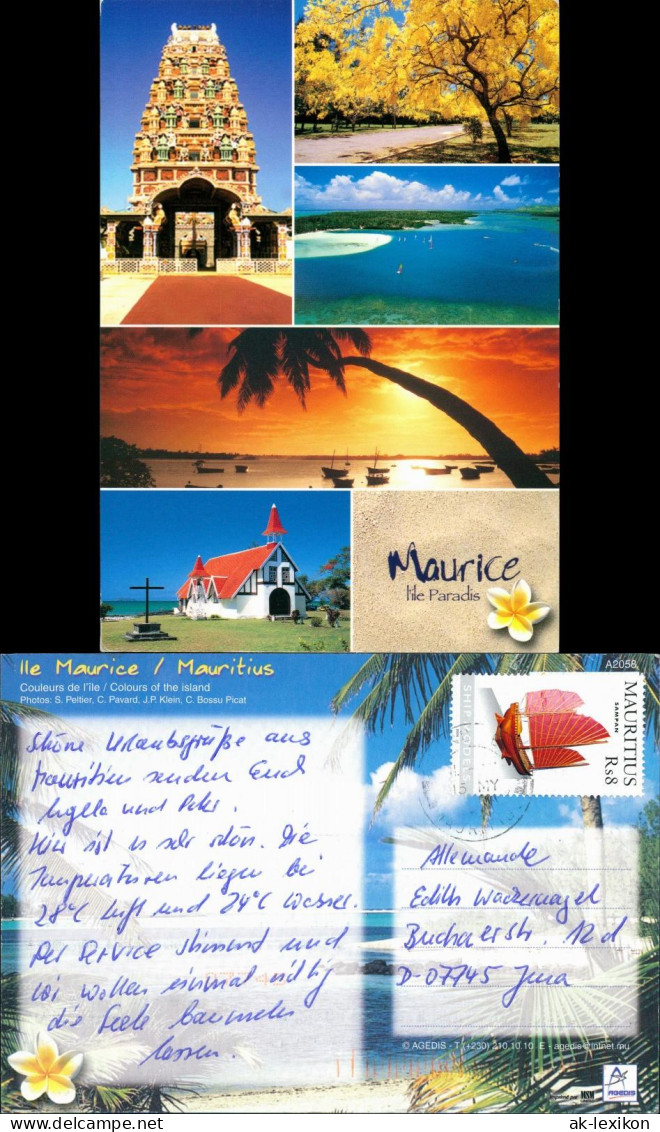 Maurice
l'ile Paradis
Ile Maurice / Mauritius
A2058
Couleurs de l'île / Colours of the island
Photos: S. Peltier, C. Pavard, J.P. Klein, C. Bossu Picat
SHIP MODELS
MAURITIUS
SAMPAN
Rs8
Schöne Urlaubsgrüße aus
Mauritius senden Euch
und Peter.
Hier ist es sehr schön. Die
Temperaturen liegen bei
28°C Luft und 24°C Wasser.
Der Service stimmt und
wir wollen einmal richtig
die Seele baumeln
lassen.
Allemande
Edith Wackernagel
Str. 12d
D-07745 Jena
© AGEDIS - T (+230) 210.10.10 E - agedis@intnet.mu
MSM
AGEDIS
ak-lexikon